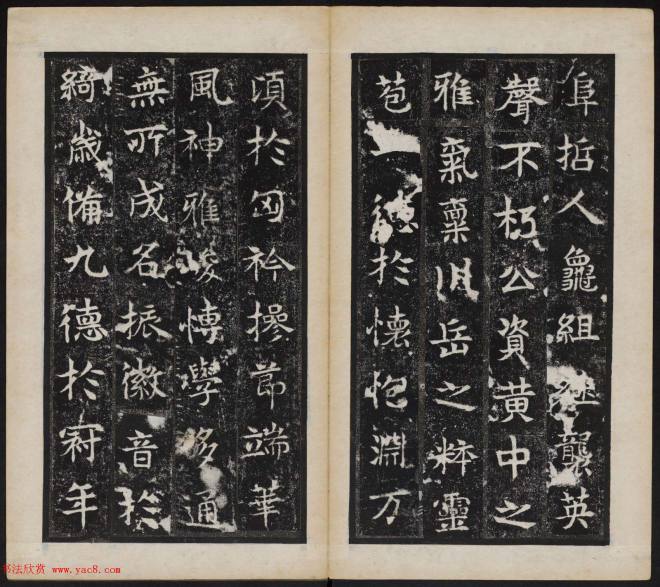 阜哲人龜組继襲英
聲不朽公資黄中之
雅氣稟川岳之粹靈
苞一德於懷抱淵万
頃於匈衿操節端華
風神雅峻博學多通
無所成名振徽音於
綺歲備九德於冠年
书法欣赏 www.yac8.com